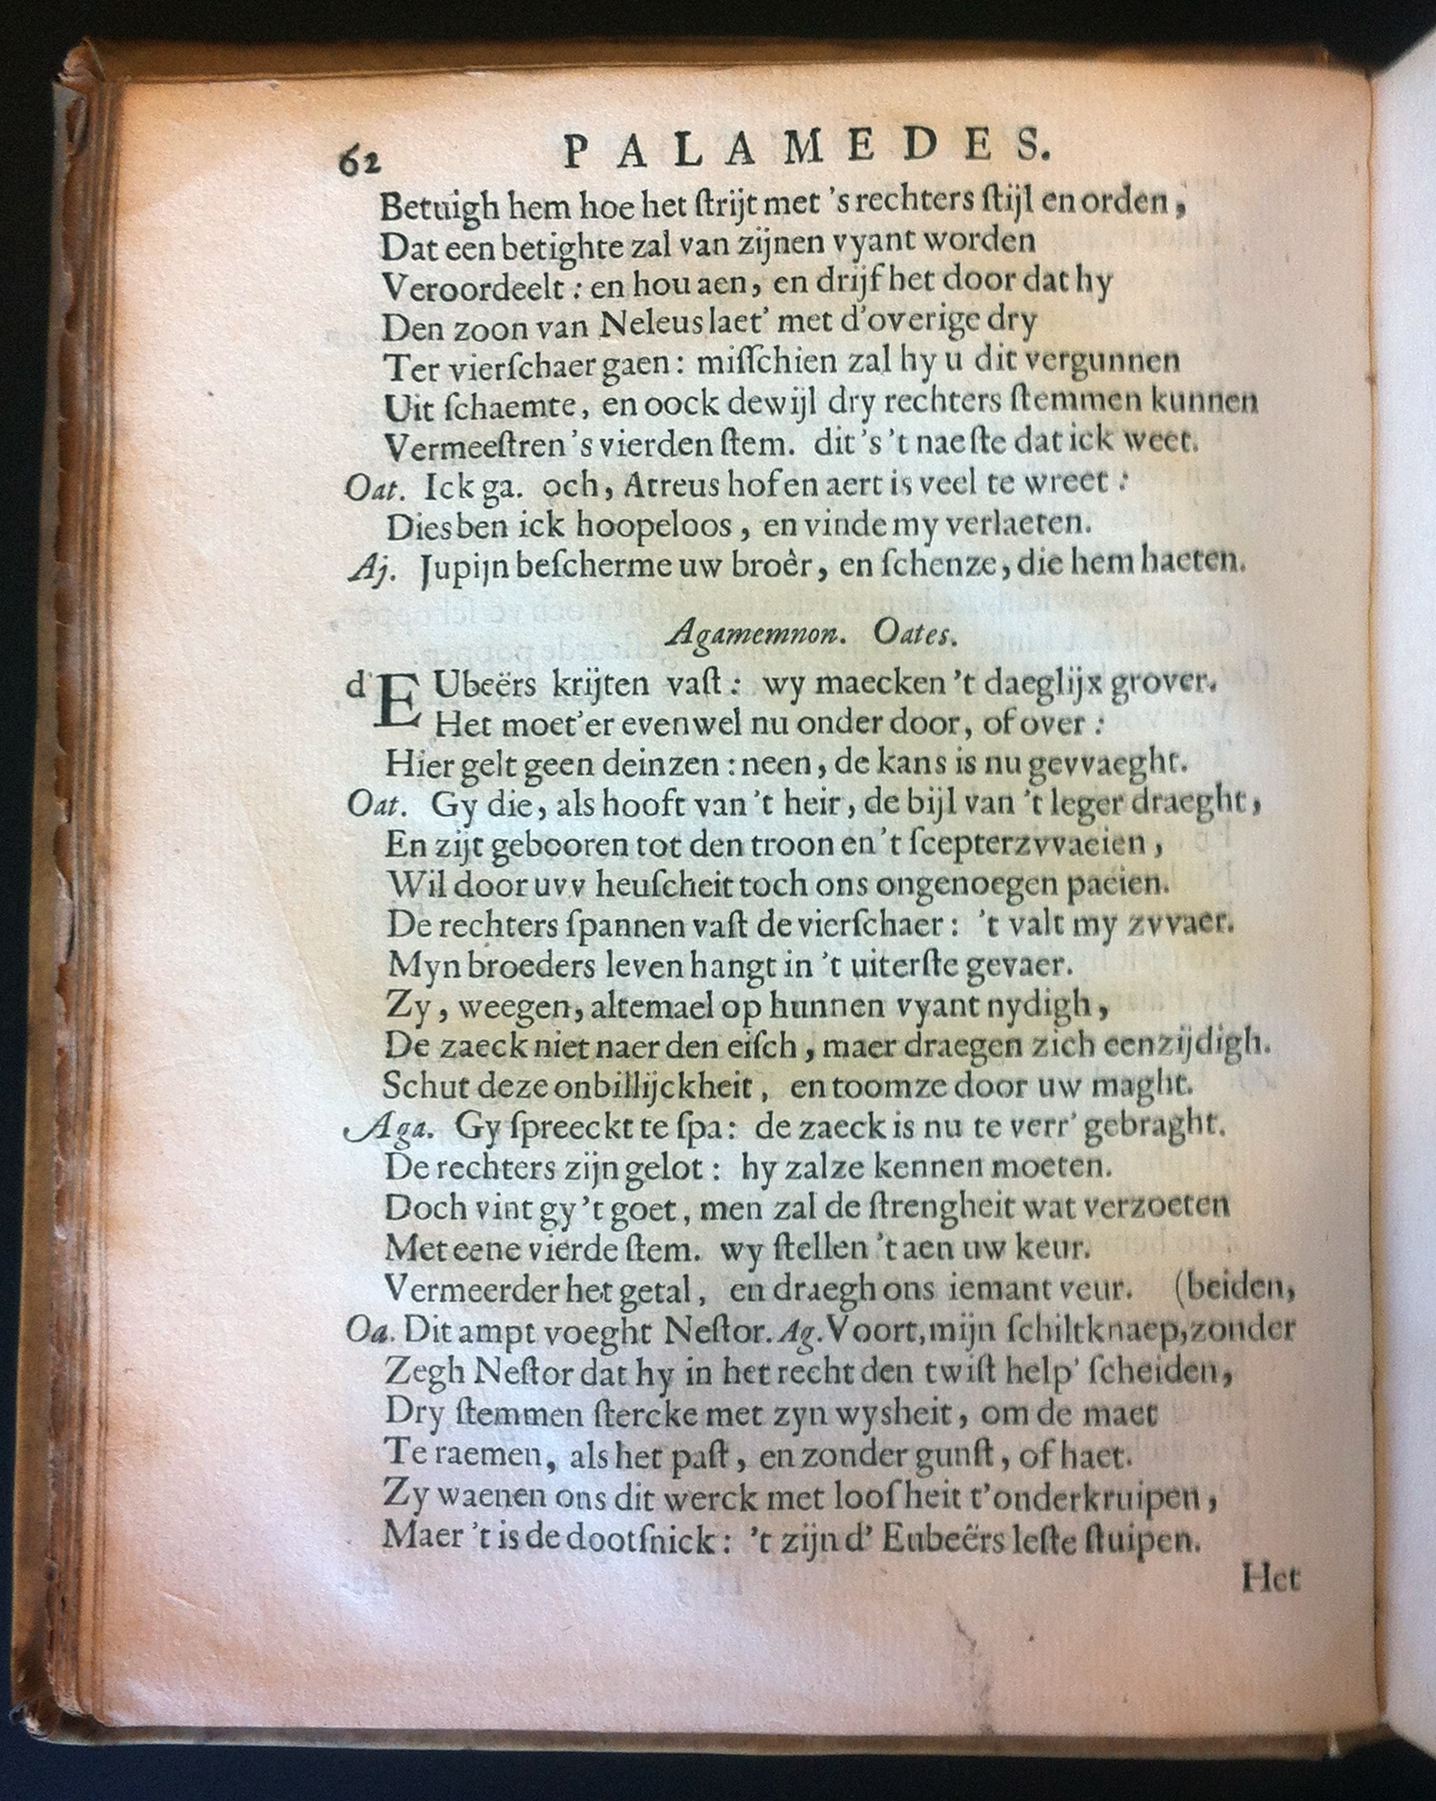 62 PALAMEDES.
Betuigh hem hoe het ſtrijt met 's rechters ſtijl en orden,
Dat een betighte zal van zijnen vyant worden
Veroordeelt: en hou aen, en drijf het door dat hy
Den zoon van Neleus laet' met d'overige dry
Ter vierſchaer gaen: miſſchien zal hy u dit vergunnen
Uit ſchaemte, en oock dewijl dry rechters ſtemmen kunnen
Vermeeſtren 's vierden ſtem. dit 's 't naeſte dat ick weet.
Oat. Ick ga. och, Atreus hof en aert is veel te wreet:
Dies ben ick hoopeloos, en vinde my verlaeten.
Aj. Jupijn beſcherme uw broêr, en ſchenze, die hem haeten.
Agamemnon. Oates.
d'EUbeërs krijten vaſt: wy maecken 't daeglijx grover.
Het moet'er evenwel nu onder door, of over:
Hier gelt geen deinzen: neen, de kans is nu gevvaeght.
Oat. Gy die, als hooft van 't heir, de bijl van 't leger draeght,
En zijt gebooren tot den troon en 't ſcepterzvvaeien,
Wil door uvv heuſcheit toch ons ongenoegen paeien.
De rechters ſpannen vaſt de vierſchaer: 't valt my zvvaer.
Myn broeders leven hangt in 't uiterſte gevaer.
Zy, weegen, altemael op hunnen vyant nydigh,
De zaeck niet naer den eiſch, maer draegen zich eenzijdigh.
Schut deze onbillijckheit, en toomze door uw maght.
Aga. Gy ſpreeckt te ſpa: de zaeck is nu te verr' gebraght.
De rechters zijn gelot: hy zalze kennen moeten.
Doch vint gy 't goet, men zal de ſtrengheit wat verzoeten
Met eene vierde ſtem. wy ſtellen 't aen uw keur.
Vermeerder het getal, en draegh ons iemant veur. (beiden,
Oa. Dit ampt voeght Neſtor. Ag. Voort, mijn ſchiltknaep, zonder
Zegh Neſtor dat hy in het recht den twiſt help' ſcheiden,
Dry ſtemmen ſtercke met zyn wysheit, om de maet
Te raemen, als het paſt, en zonder gunſt, of haet.
Zy waenen ons dit werck met loofheit t'onderkruipen,
Maer 't is de dootſnick: 't zijn d' Eubeërs leſte ſtuipen.
Het